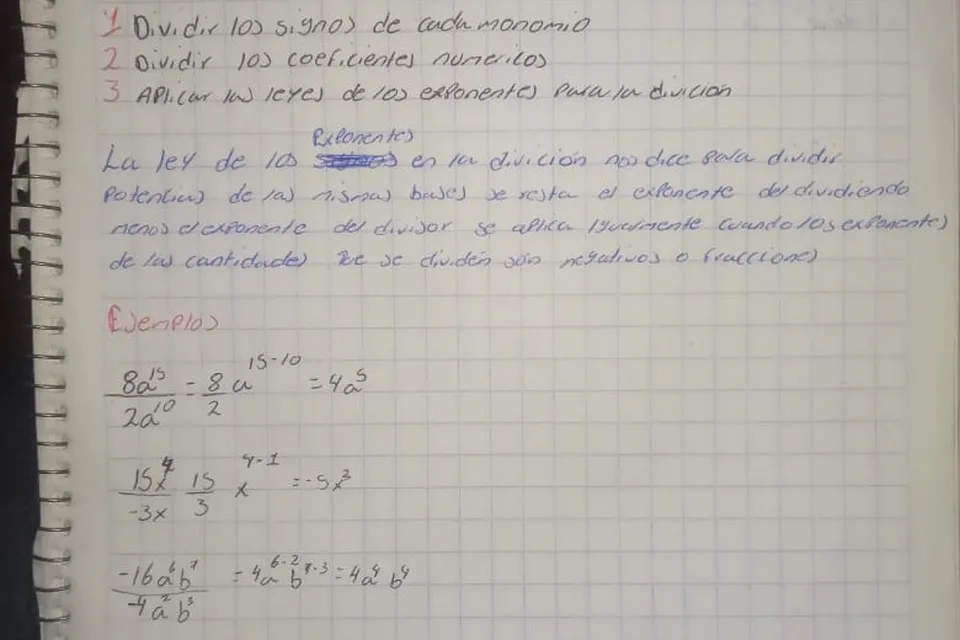 1 Dividir los signos de cada monomio
2 Dividir los coeficientes numericos
3 Aplicar las leyes de los exponentes para la divicion
Exponentes
La ley de los en la divición nos dice para dividir
Potencias de las mismas bases se resta el exponente del dividiendo
menos el exponente del divisor se aplica igualmente cuando los exponentes
de las cantidades se dividen són negativos o fracciones
Ejemplos
8a^15/2a^10 = 8/2 a^15-10 = 4a^5
15x^4/-3x 15/3 x^4-1 = -5x^3
-16a^6b^7/-4a^2b^3 = 4a^6-2 b^7-3 = 4a^4 b^4